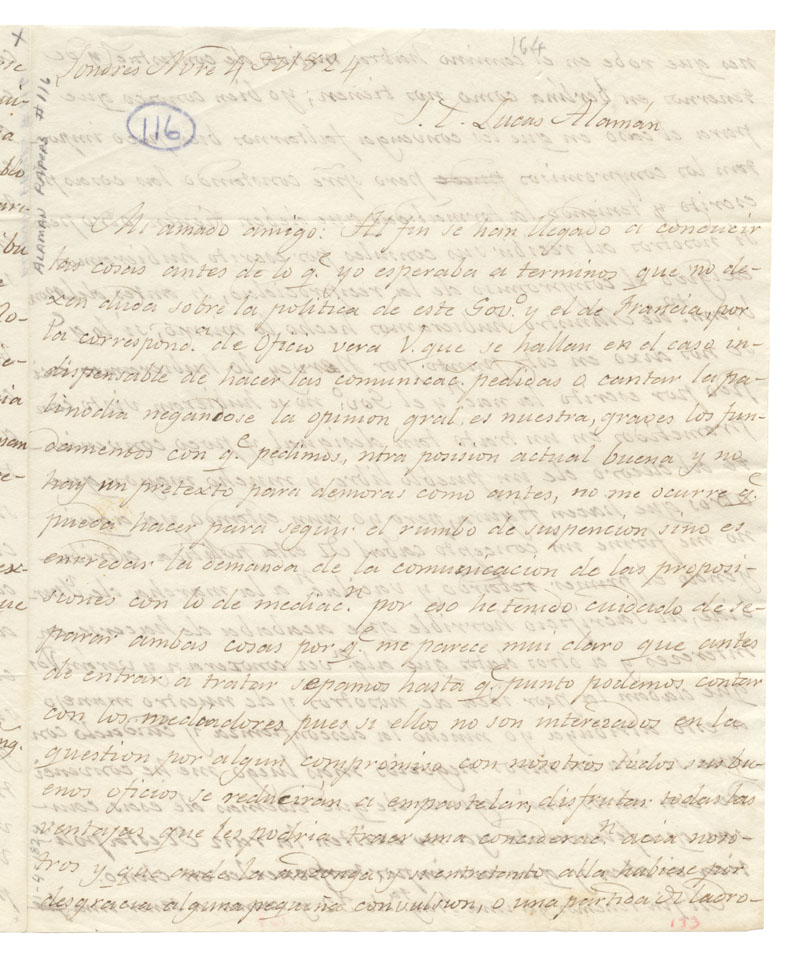 164
Londres Nvre 4 de 1824
116
S. D. Lucas Alamán
ALAMAN PAPERS #116
Mi amado amigo: Al fin se han llegado a conducir
las cosas antes de lo qe. yo esperaba a terminos que no de-
xen duda sobre la politica de este Govo. y el de Francia, por
la correspona. de Oficio vera V. que se hallan en el caso in-
dispensable de hacer las comunicac. pedidas o cantar la pa-
linodia negandose la opinion gral. es nuestra, graves los fun-
damentos con qe. pedimos, ntra posision actual buena y no
hay un pretexto para demoras como antes, no me ocurre qe.
pueda hacer para seguir el rumbo de suspencion sino es
enredar la demanda de la comunicacion de las proposi-
siones con lo de mediacn. por eso he tenido cuidado de se-
parar ambas cosas por qe. me parece mui claro que antes
de entrar a tratar sepamos hasta qe. punto podemos contar
con los mediadores pues si ellos no son interezados en la
question por algun compromiso con nosotros todos sus bu-
enos oficios se reducirán a empastelar, disfrutar todas las
ventajas que les podria traer una concideracn. acia noso-
tros y que ande la andonga, y si entretanto alla habiese por
desgracia alguna pequeña convulsion, o una partida de ladro-
153